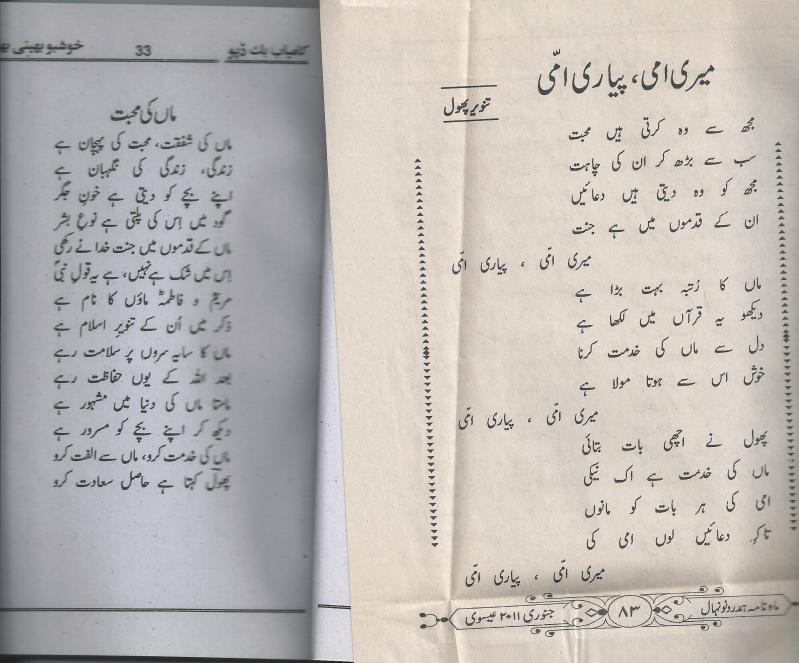 میری امی، پیاری امّی
تنویر پھول
مجھ سے وہ کرتی ہیں محبت
سب سے بڑھ کر ان کی چاہت
مجھ کو وہ دیتی ہیں دعائیں
ان کے قدموں میں ہے جنت
میری امّی ، پیاری امّی
ماں کا رُتبہ بہت بڑا ہے
دیکھو یہ قرآں میں لکھا ہے
دل سے ماں کی خدمت کرنا
خوش اس سے ہوتا مولا ہے
میری امّی ، پیاری امّی
پھول نے اچھی بات بتائی
ماں کی خدمت ہے اک نیکی
امی کی ہر بات کو مانوں
تاکہ دعائیں لوں امی کی
میری امّی ، پیاری امّی
ماہ نامہ ہمدرد نونہال
۸۳
جنوری ۲۰۱۱ عیسوی
کامیاب بک ڈپو
33
خوشبو بھینی بھ
ماں کی محبت
ماں کی شفقت، محبت کی پہچان ہے
زندگی، زندگی کی نگہبان ہے
اپنے بچے کو دیتی ہے خونِ جگر
گود میں اِس کی پلتی ہے نوعِ بشر
ماں کے قدموں میں جنت خدا نے رکھی
اِس میں شک ہے نہیں، ہے یہ قولِ نبیؐ
مریمؑ و فاطمہؓ ماؤں کا نام ہے
ذکر میں اُن کے تنویرِ اسلام ہے
ماں کا سایہ سروں پر سلامت رہے
بعد اللہ کے یوں حفاظت رہے
مامتا ماں کی دنیا میں مشہور ہے
دیکھ کر اپنے بچے کو مسرور ہے
ماں کی خدمت کرو، ماں سے الفت کرو
پھولؔ کہتا ہے حاصل سعادت کرو